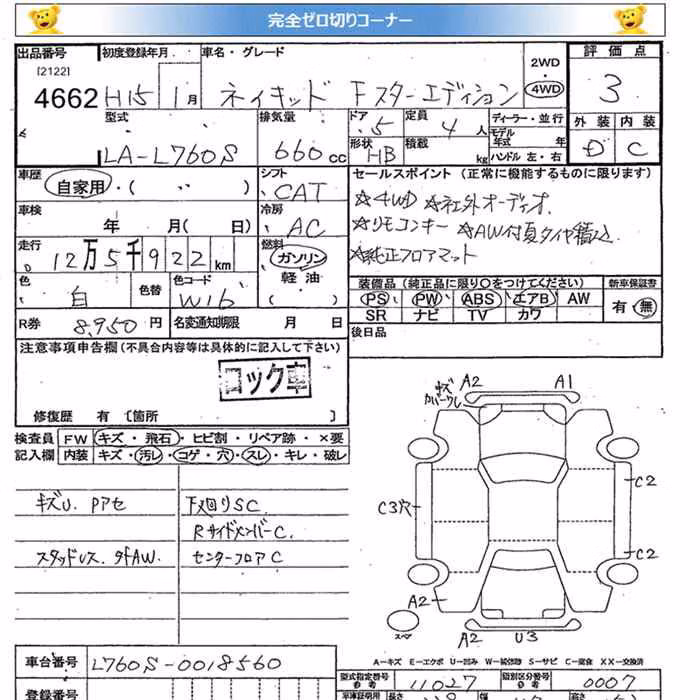 完全ゼロ切りコーナー
出品番号 初度登録年月 車名・グレード 2WD 評価点
[2122]
4662 H15 1月 ネイキッド Fスターエディション 4WD 3
型式 排気量 ドア 5 定員 4人 ディーラー・並行 外装 内装
モデル年式 年
LA-L760S 660cc 形状 HB 積載 kg ハンドル 左・右 D C
車歴 シフト セールスポイント (正常に機能するものに限ります)
自家用・( 〃 ) CAT ☆4WD ☆社外オーディオ
車検 冷房 ☆リモコンキー ☆AW付夏タイヤ積込
年 月( 日) AC ☆純正フロアマット
走行 燃料
12万5千922km ガソリン
軽油
色 色替 色コード 装備品 (純正品に限り○をつけてください) 新車保証書
白 W16 ( ) PS PW ABS エアB AW 有・無
SR ナビ TV カワ
R券 8,950円 名変通知期限 月 日 後日品
注意事項申告欄(不具合内容等は具体的に記入して下さい)
コック車
修復歴 有 〔箇所 〕
検査員 FW キズ・飛石・ヒビ割・リペア跡・×要
記入欄 内装 キズ・汚レ・コゲ・穴・スレ・キレ・破レ
キズU. Pアセ 下廻りSC
RサイドメンバーC.
スタッドレス. 外AW. センターフロアC
キズ A2 A1
カバーウレ
C2
C3穴
C2
A2
スペア
A2 U3
A-キズ E-エクボ U-凹み W-補修跡 S-サビ C-腐食 XX-交換済
車台番号 L760S-0018560
型式指定番号 11027 類別区分番号 0007
登録番号